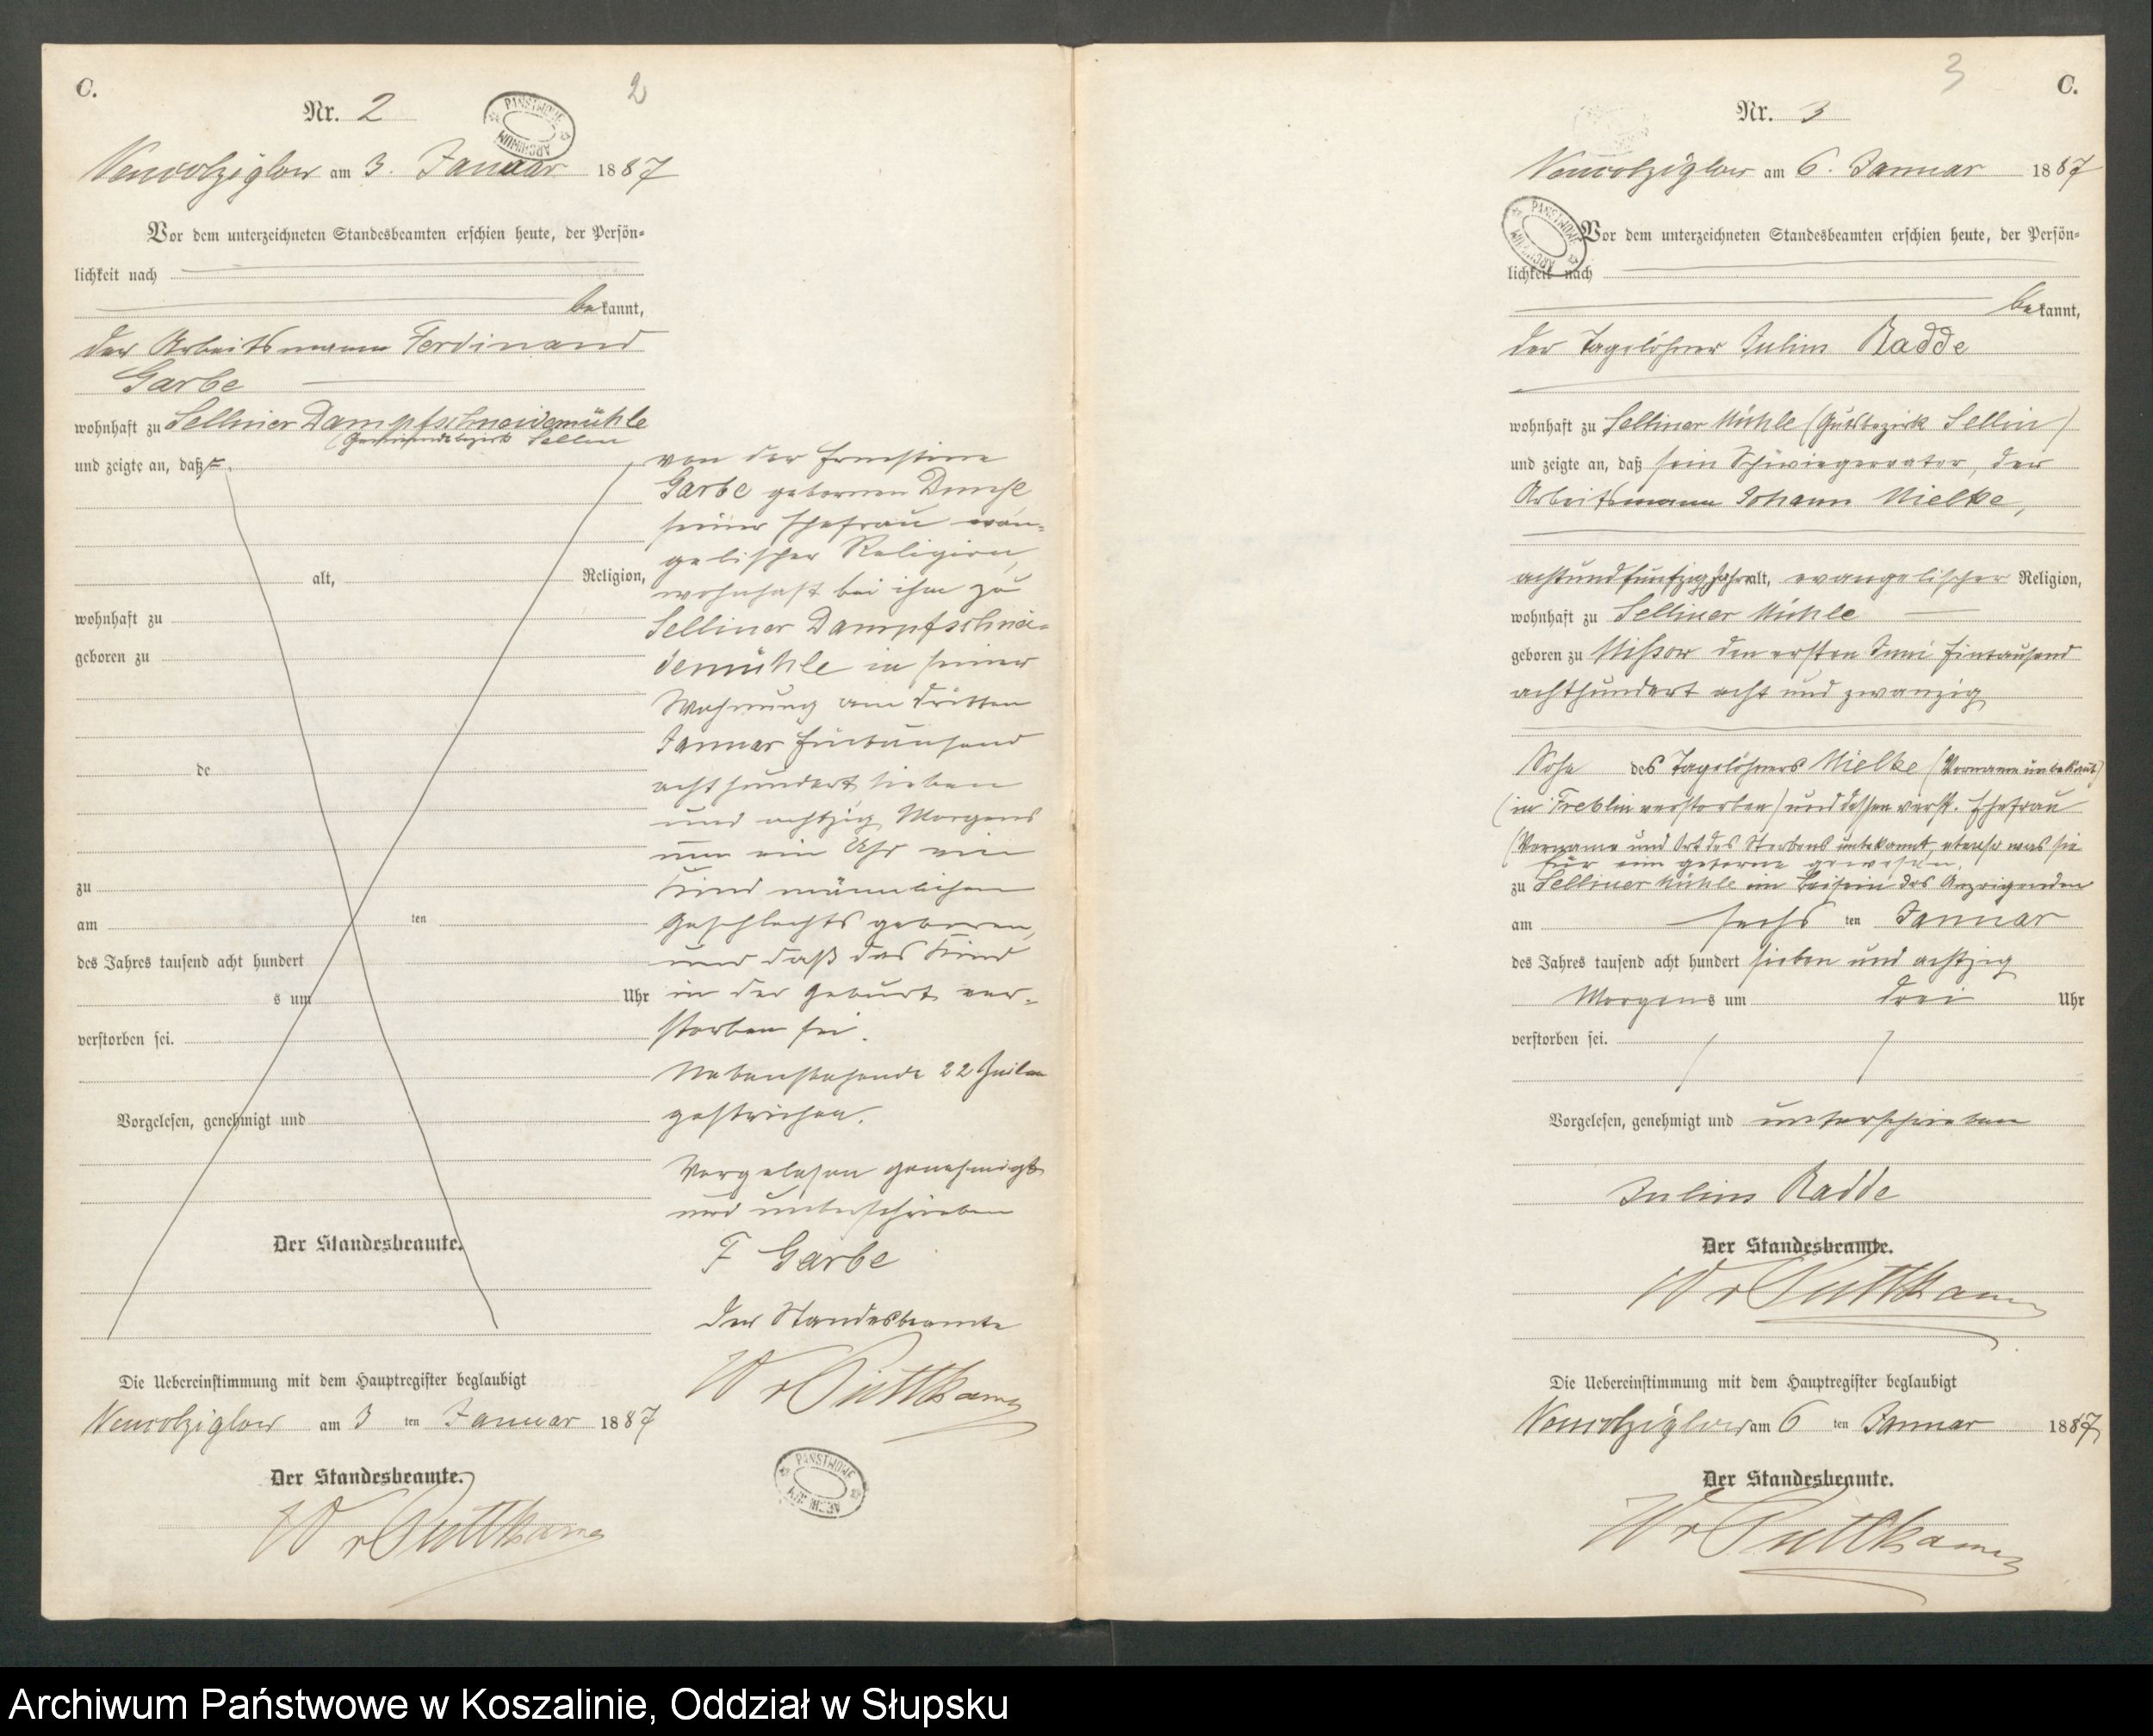 C.
2
Nr. 2
PANSTWOWE ARCHIWUM
Neuwolziglow am 3. Januar 1887
Vor dem unterzeichneten Standesbeamten erschien heute, der Persön=
lichkeit nach
bekannt,
der Arbeitsmann Ferdinand
Garbe
wohnhaft zu Selliner Dampfschneidemühle
Sellin
und zeigte an, daß
alt, Religion,
wohnhaft zu
geboren zu
de
zu
am ten
des Jahres tausend acht hundert
s um Uhr
verstorben sei.
Vorgelesen, genehmigt und
Der Standesbeamte.
von der Ernestine
Garbe geborenen
seiner Ehefrau evan=
gelischer Religion,
wohnhaft bei ihm zu
Selliner Dampfschnei=
demühle in seiner
Wohnung am dritten
Januar Eintausend
achthundert sieben
und achtzig Morgens
um ein Uhr ein
Kind männlichen
Geschlechts geboren,
und daß das Kind
in der Geburt ver=
storben sei.
Nebenstehende 22 Zeilen
gestrichen.
Vorgelesen genehmigt
und unterschrieben
F Garbe
Der Standesbeamte
W v Puttkamer
Die Uebereinstimmung mit dem Hauptregister beglaubigt
Neuwolziglow am 3 ten Januar 1887
Der Standesbeamte.
W v Puttkamer
PANSTWOWE ARCHIWUM
3
C.
Nr. 3
Neuwolziglow am 6. Januar 1887
PANSTWOWE ARCHIWUM
Vor dem unterzeichneten Standesbeamten erschien heute, der Persön=
lichkeit nach
bekannt,
der Tagelöhner Julius Radde
wohnhaft zu Selliner Mühle (Gutsbezirk Sellin)
und zeigte an, daß sein Schwiegervater, der
Arbeitsmann Johann Mielke,
achtundfünfzig Jahr alt, evangelischer Religion,
wohnhaft zu Selliner Mühle
geboren zu Mißow den ersten Juni Eintausend
achthundert acht und zwanzig
Sohn des Tagelöhners Mielke (Vorname unbekant)
(in Treblin verstorben) und dessen verst. Ehefrau
(Vorname und Ort des Sterbens unbekannt, ebenso was sie
für eine geborne gewesen,
zu Selliner Mühle im Beisein des Anzeigenden
am sechs ten Januar
des Jahres tausend acht hundert sieben und achtzig
Morgens um drei Uhr
verstorben sei.
Vorgelesen, genehmigt und unterschrieben
Julius Radde
Der Standesbeamte.
W v Puttkamer
Die Uebereinstimmung mit dem Hauptregister beglaubigt
Neuwolziglow am 6 ten Januar 1887
Der Standesbeamte.
W v Puttkamer
Archiwum Państwowe w Koszalinie, Oddział w Słupsku